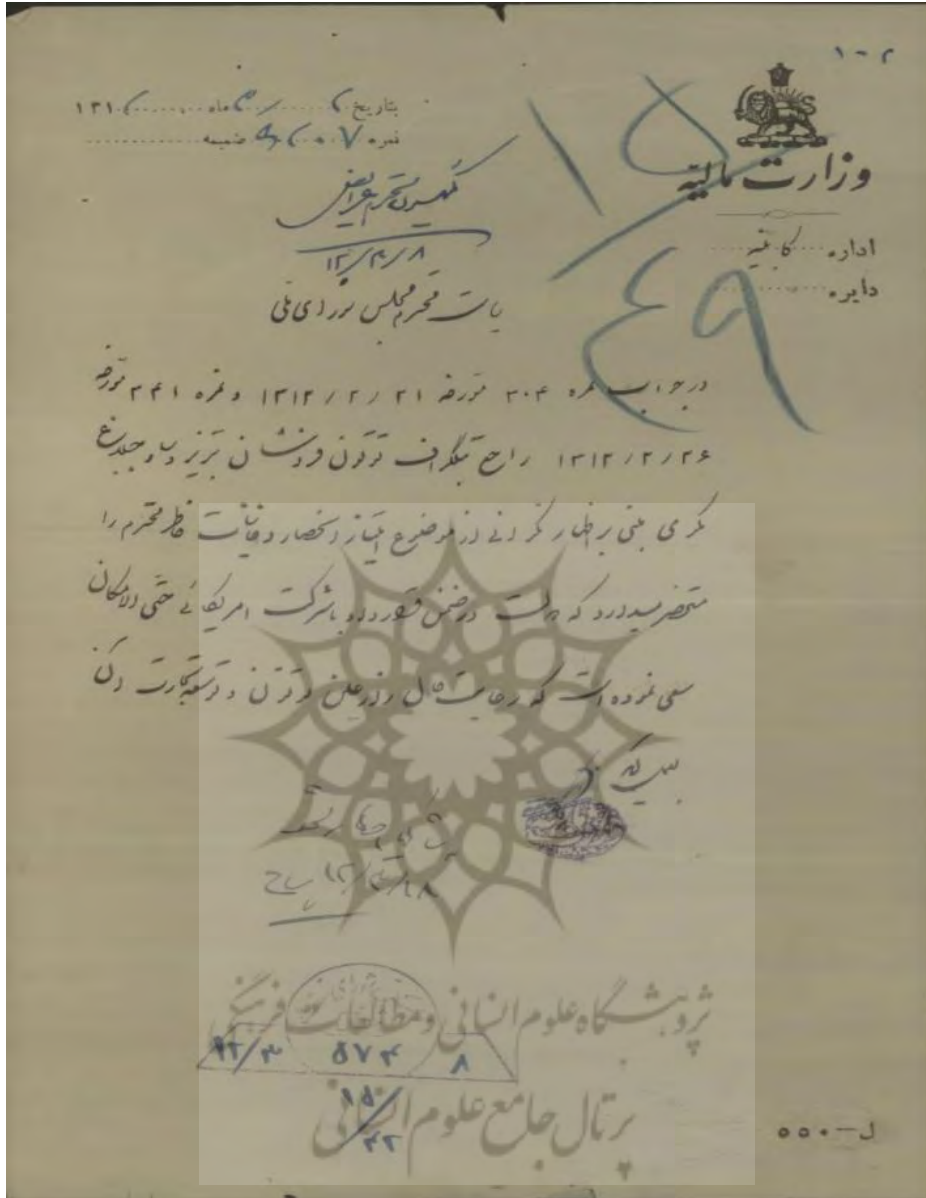 ۱-۲
وزارت مالیّه
اداره کابینه
دایره
بتاریخ ماه ۱۳۱
نمره ضمیمه
کمیسیون محترم عرایض
۱۲/۳/۸
۱۵
۴۹
ریاست محترم مجلس شورای ملی
در جواب نمره ۲۰۴ مورخه ۱۳۱۲/۲/۲۱ و نمره ۲۴۱ مورخه
۱۳۱۲/۲/۲۶ راجع بتلگراف توتون فروشان تبریز و ساوجبلاغ
مکری مبنی بر اظهار نگرانی از موضوع امتیاز انحصار دخانیات خاطر محترم را
مستحضر میدارد که دولت در ضمن قرارداد با شرکت امریکائی حتی الامکان
سعی نموده است که رعایت حال زارعین توتون و توسعه تجارت آن
بعمل آید
پژوهشگاه علوم انسانی و مطالعات فرهنگی
۱۲/۳ ۵۷۴ ۸
۱۵/۴۲
پرتال جامع علوم انسانی
ل-۵۵۰